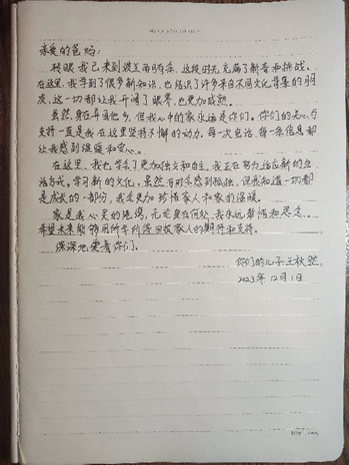 亲爱的爸妈:
转眼我已来到波兰两月余,这段时光充满了新奇和挑战。
在这里,我学到了很多新知识,也结识了许多来自不同文化背景的朋
友,这一切都让我开阔了眼界,也更加成熟。
虽然身在异国他乡,但我心中的家永远是你们。你们的关心与
支持一直是我在这里坚持不懈的动力。每一次电话,每一条信息都
让我感到温暖和安心。
在这里,我也学会了更加独立和自主。我正在努力适应新的生
活方式,学习新的文化,虽然有时会感到孤独,但我知道一切都
是成长的一部分,我会更加珍惜家人和家的温暖。
家是我心灵的港湾,无论身在何处,我永远都怀和思念。
希望未来能够用所学所得回报家人的期许和支持。
深深地爱着你们。
你们的儿子:王秋
2023年12月1日